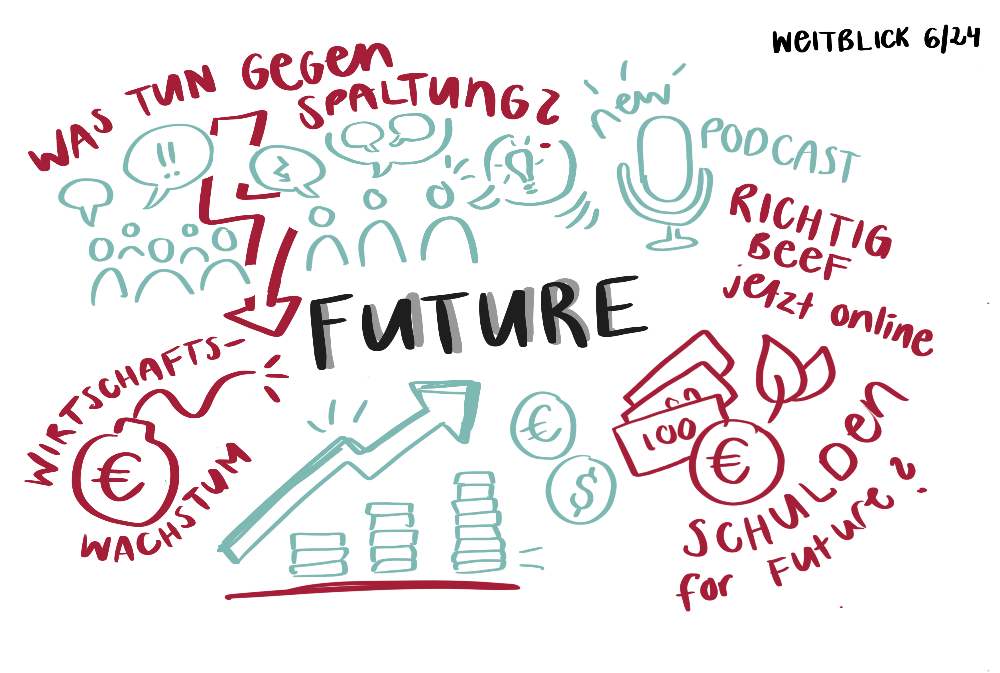 WEITBLICK 6/24
WAS TUN GEGEN
SPALTUNG?
!!
new
PODCAST
RICHTIG
BEEF
jetzt online
FUTURE
WIRTSCHAFTS-
€
WACHSTUM
€
$
100
€
SCHULDEN
for Future?